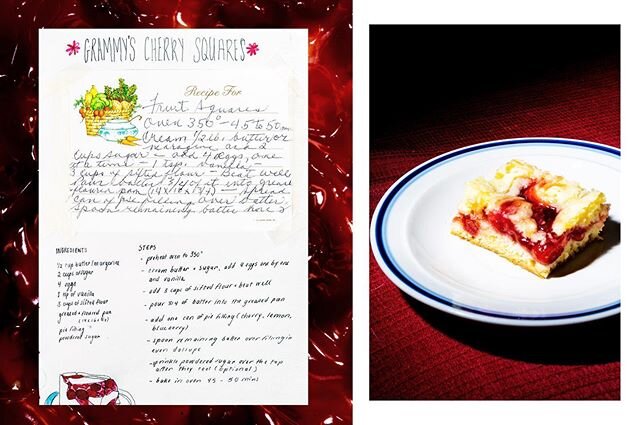 *GRAMMY'S CHERRY SQUARES*
Recipe For
Fruit Squares
Oven 350° - 45 to 50 min
Cream 1/2 lb. butter or
margarine and 2
cups sugar - add 4 eggs, one
at a time - 1 tsp. vanilla -
3 cups sifted flour - Beat well
Pour batter 3/4 of it into grease
+ flour pan - spread
can of pie filling over batter.
Spoon remaining batter
INGREDIENTS
1/2 cup butter/margarine
2 cups sugar
4 eggs
1 tsp of vanilla
3 cups of sifted flour
greased + floured pan
pie filling
powdered sugar
STEPS
- preheat oven to 350°
- cream butter + sugar, add 4 eggs one by one
and vanilla
- add 3 cups of sifted flour + beat well
- pour 3/4 of batter into the greased pan
- add one can of pie filling (cherry, lemon,
blueberry)
- spoon remaining batter over filling in
even dollops
- sprinkle powdered sugar over the top
after they cool (optional)
- bake in oven 45 - 50 mins